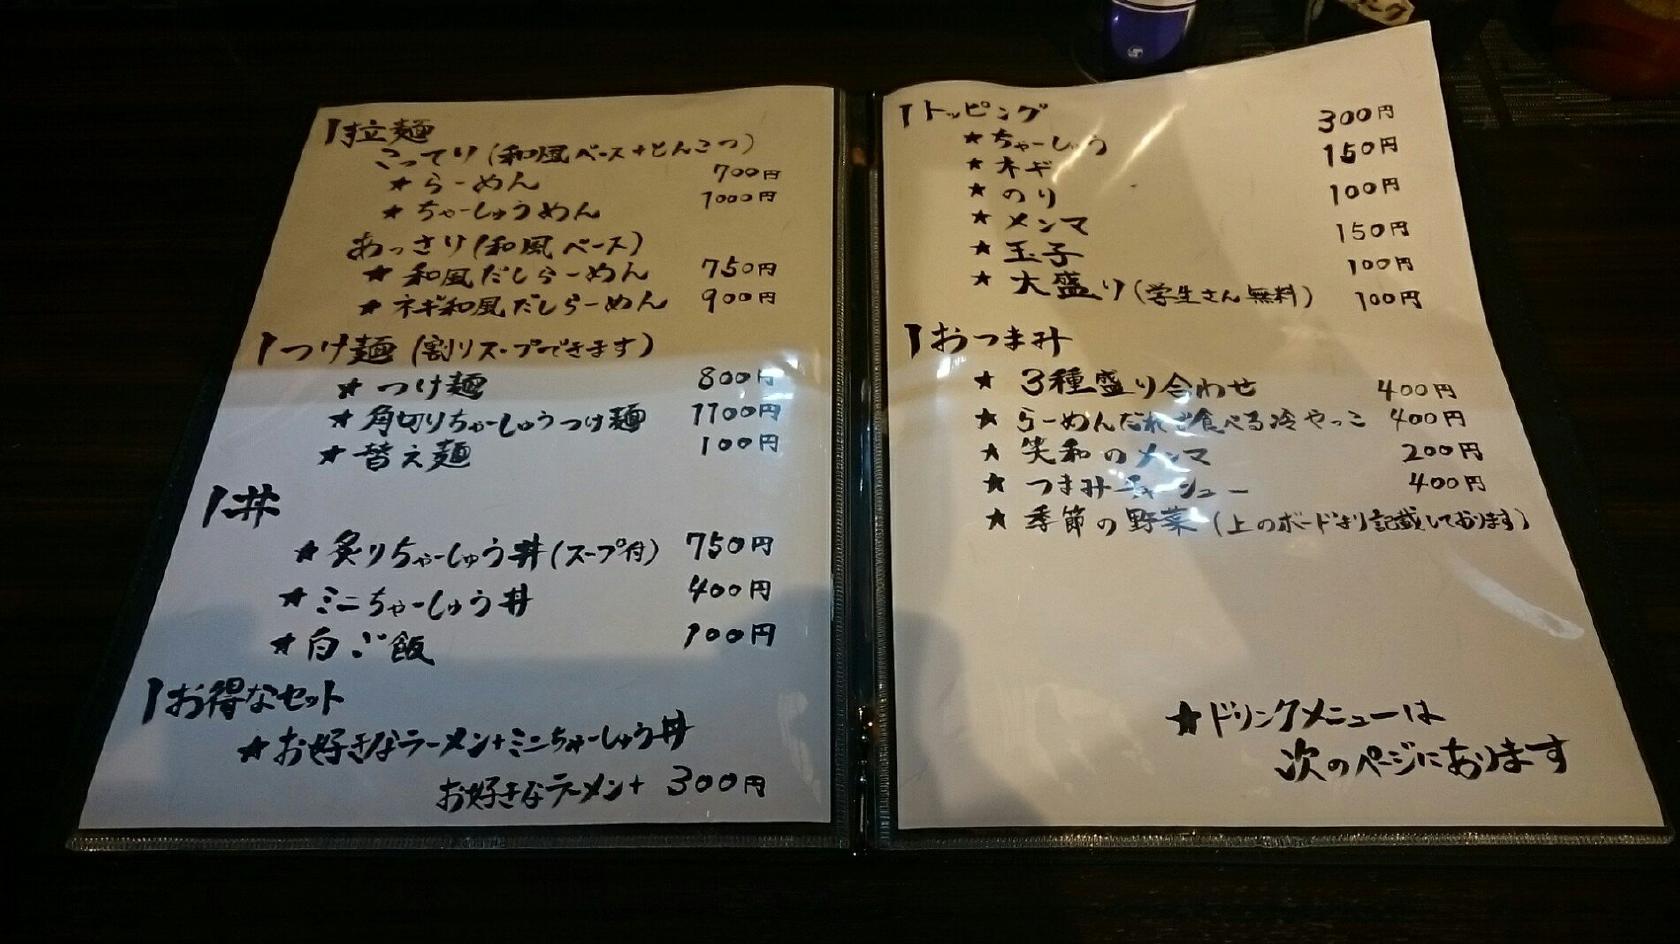 拉麺
こってり(和風ベース+とんこつ)
★らーめん 700円
★ちゃーしゅうめん 1000円
あっさり(和風ベース)
★和風だしらーめん 750円
★ネギ和風だしらーめん 900円
つけ麺(割りスープできます)
★つけ麺 800円
★角切りちゃーしゅうつけ麺 1100円
★替え麺 100円
丼
★炙りちゃーしゅう丼(スープ付) 750円
★ミニちゃーしゅう丼 400円
★白ご飯 100円
お得なセット
★お好きなラーメン+ミニちゃーしゅう丼
お好きなラーメン+ 300円
トッピング
★ちゃーしゅう 300円
★ネギ 150円
★のり 100円
★メンマ 150円
★玉子 100円
★大盛り(学生さん無料) 100円
おつまみ
★3種盛り合わせ 400円
★らーめんだれで食べる冷やっこ 400円
★笑和のメンマ 200円
★つまみチャーシュー 400円
★季節の野菜(上のボードより記載しております)
★ドリンクメニューは
次のページにあります